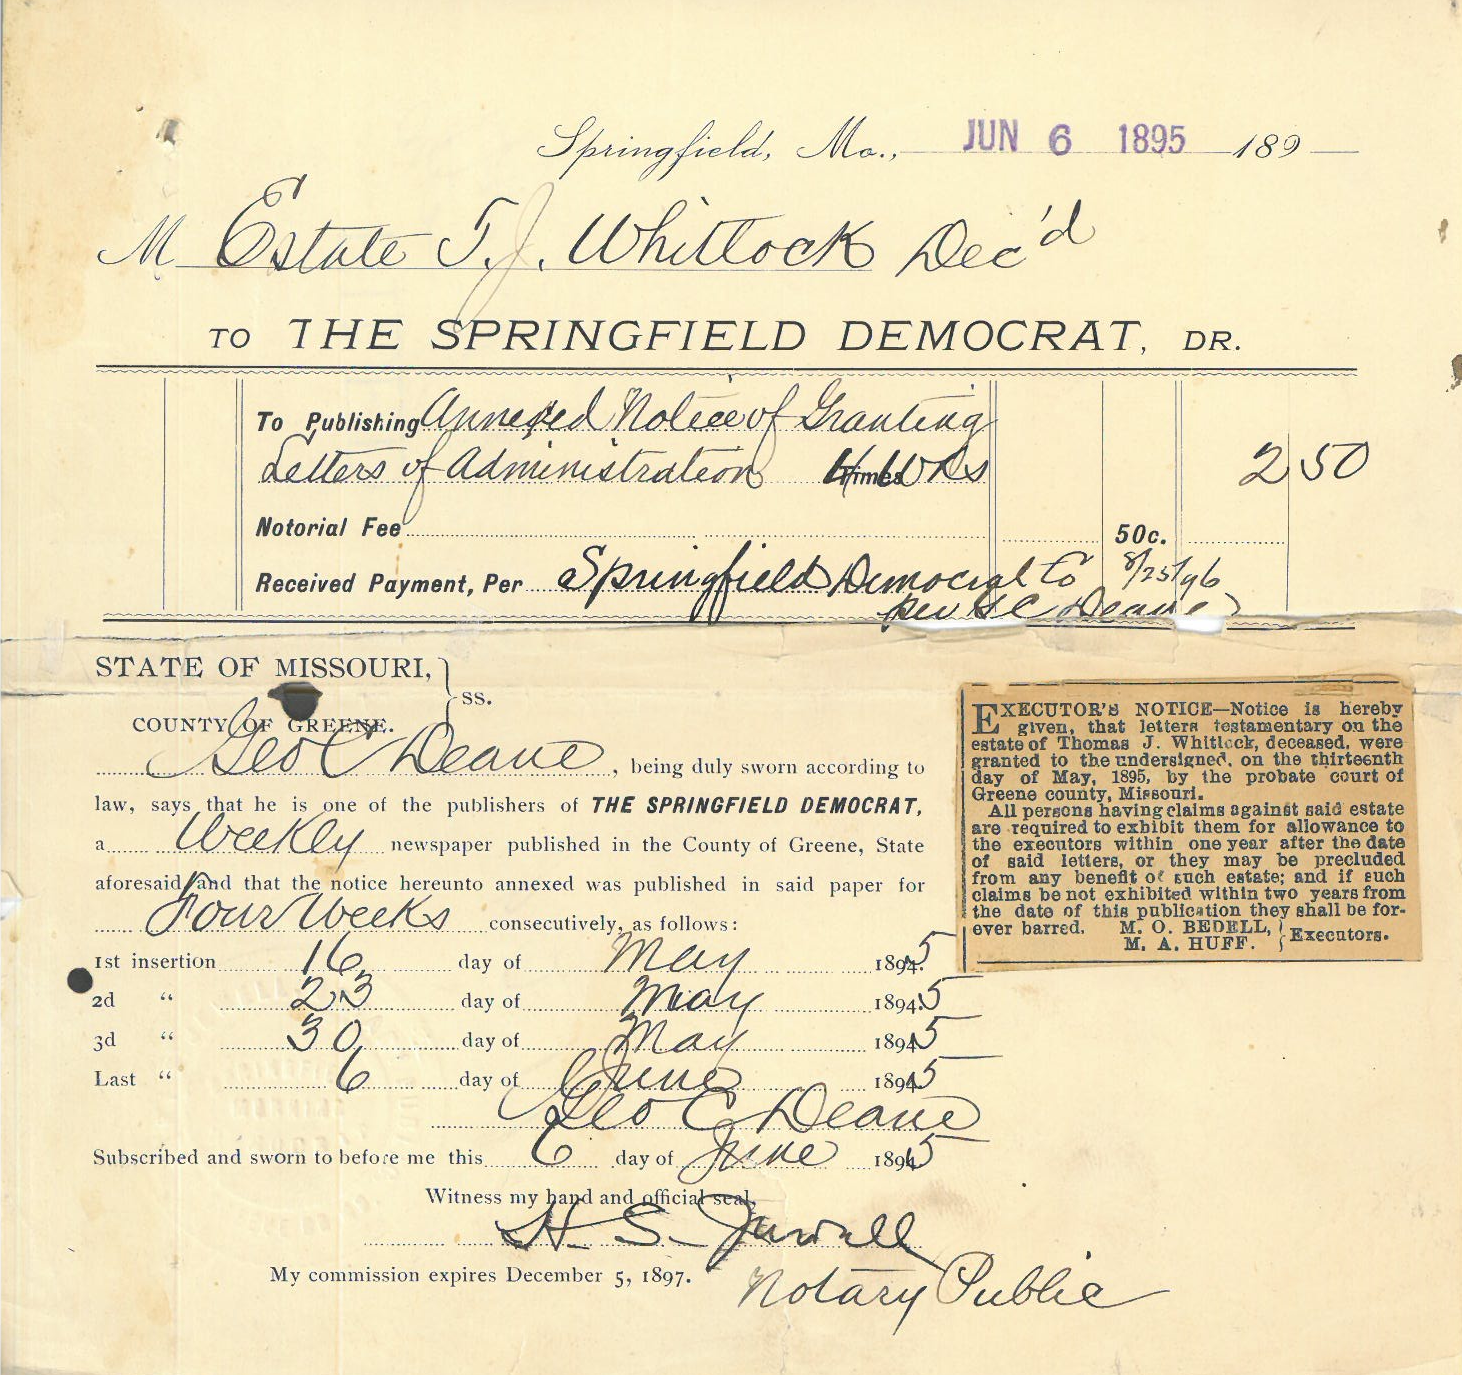 Springfield, Mo., JUN 6 1895 189
M Estate T. J. Whitlock Dec'd
TO THE SPRINGFIELD DEMOCRAT, DR.
To Publishing Annexed Notice of Granting
Letters of Administration 4 Wks 2 50
Notorial Fee 50c.
Received Payment, Per Springfield Democrat Co 8/25/96
per G C Deane
STATE OF MISSOURI, } ss.
COUNTY OF GREENE.
Geo C Deane, being duly sworn according to
law, says that he is one of the publishers of THE SPRINGFIELD DEMOCRAT,
a Weekly newspaper published in the County of Greene, State
aforesaid, and that the notice hereunto annexed was published in said paper for
Four Weeks consecutively, as follows:
1st insertion 16 day of May 1895
2d " 23 day of May 1895
3d " 30 day of May 1895
Last " 6 day of June 1895
Geo C Deane
Subscribed and sworn to before me this 6 day of June 1895
Witness my hand and official seal,
H. S. Jewell
My commission expires December 5, 1897.
Notary Public
EXECUTOR'S NOTICE—Notice is hereby
given, that letters testamentary on the
estate of Thomas J. Whitlock, deceased, were
granted to the undersigned, on the thirteenth
day of May, 1895, by the probate court of
Greene county, Missouri.
All persons having claims against said estate
are required to exhibit them for allowance to
the executors within one year after the date
of said letters, or they may be precluded
from any benefit of such estate; and if such
claims be not exhibited within two years from
the date of this publication they shall be for-
ever barred. M. O. BEDELL, }
M. A. HUFF. } Executors.